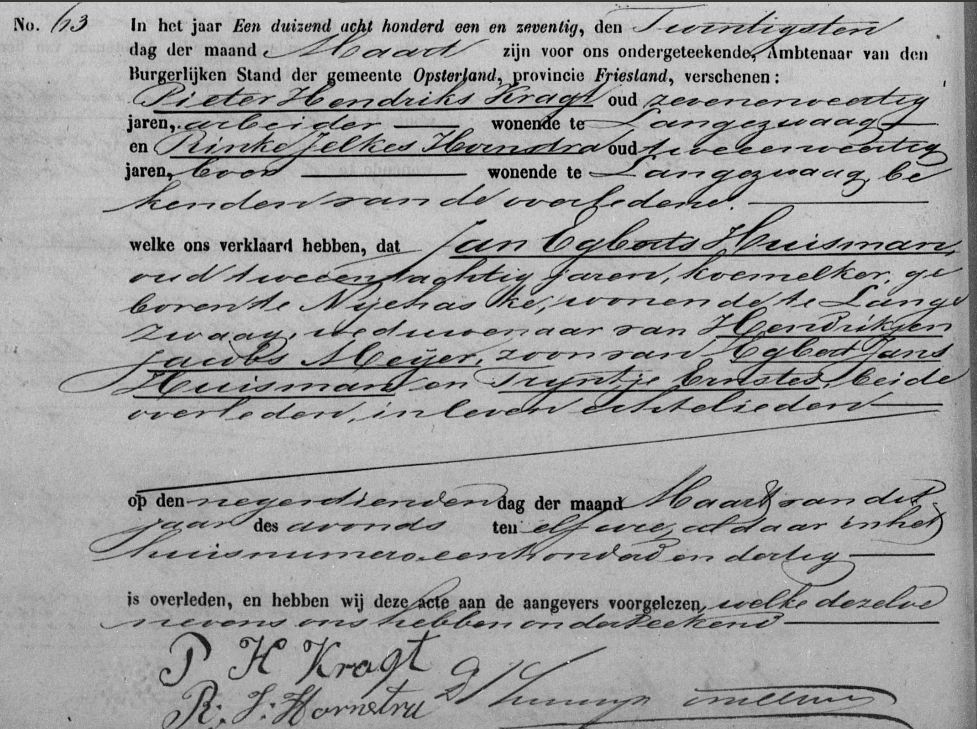 No. 63 In het jaar Een duizend acht honderd een en zeventig, den Twintigsten
dag der maand Maart zijn voor ons ondergeteekende, Ambtenaar van den
Burgerlijken Stand der gemeente Opsterland, provincie Friesland, verschenen:
Pieter Hendriks Kragt oud zevenenveertig
jaren, arbeider wonende te Langezwaag
en Rinke Jelkes Hornstra oud tweeenveertig
jaren, boer wonende te Langezwaag, be
kenden van de overledene.
welke ons verklaard hebben, dat Jan Egberts Huisman,
oud tweeentachtig jaren, koemelker, ge
boren te Nijehaske, wonende te Lange
zwaag, weduwenaar van Hendrikjen
Jacobs Meijer, zoon van Egbert Jans
Huisman en Trijntje Ernstes, beide
overleden, in leven echtelieden
op den negentienden dag der maand Maart van dit
jaar des avonds ten elf ure, aldaar in het
huis numero eenhonderd en dertig
is overleden, en hebben wij deze acte aan de aangevers voorgelezen, welke dezelve
nevens ons hebben onderteekend
P H Kragt
R: J: Hornstra